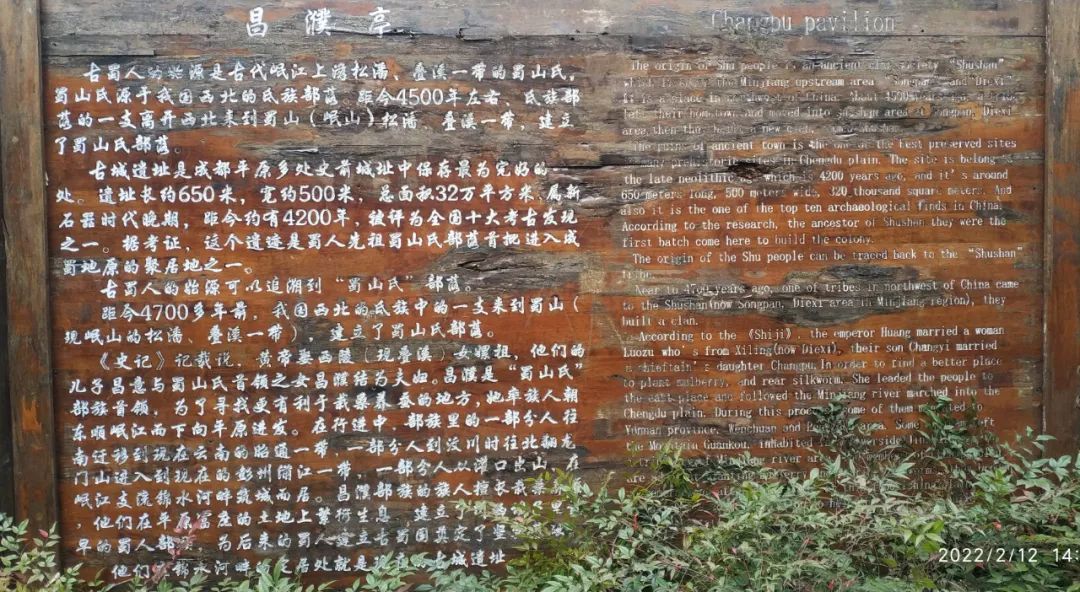 昌濮亭
古蜀人的始源是古代岷江上游松潘、叠溪一带的蜀山氏,
蜀山氏源于我国西北的氐族部落。距今4500年左右,氐族部
落的一支离开西北来到蜀山(岷山)松潘、叠溪一带,建立
了蜀山氏部落。
古城遗址是成都平原多处史前城址中保存最为完好的一
处。遗址长约650米,宽约500米,总面积32万平方米,属新
石器时代晚期,距今约有4200年,被评为全国十大考古发现
之一。据考证,这个遗迹是蜀人先祖蜀山氏部落首批进入成
蜀地原的聚居地之一。
古蜀人的始源可以追溯到“蜀山氏”部落。
距今4700多年前,我国西北的氐族中的一支来到蜀山(
现岷山的松潘、叠溪一带),建立了蜀山氏部落。
《史记》记载说,黄帝娶西陵(现叠溪)女嫘祖,他们的
儿子昌意与蜀山氏首领之女昌濮结为夫妇。昌濮是“蜀山氏”
部族首领,为了寻找更有利于栽桑养蚕的地方,她率族人朝
东顺岷江而下向平原进发。在行进中,部族里的一部分人往
南迁移到现在云南的昭通一带,一部分人到汶川时往北翻龙
门山进入到现在的彭州湔江一带,一部分人从灌口出山,在
岷江支流锦水河畔筑城而居。昌濮部族的族人擅长栽桑养
,他们在平原富庶的土地上繁衍生息,建立了
年的蜀人部 为后来的蜀人建立古蜀国奠定了坚
他们 锦水河畔的定居处就是现 古城遗址
Changpu pavilion
The origin of Shu people is an ancient clan society "Shushan"
which is lobby the Minjiang upstream area "Songpan" and "Diexi"
It is a place in northwest of China. About 4500 years ago,
left their hometown and moved into Shushan area of Songpan, Diexi
area, then they built a new clan,
The ruins of ancient town is the one of the best preserved sites
many prehistoric sites in Chengdu plain. The site is belong
the late neolithic age which is 4200 years ago, and it's around
650 meters long, 500 meters wide, 320 thousand square meters. And
also it is the one of the top ten archaeological finds in China.
According to the research, the ancestor of Shushan they were the
first batch come here to build the colony.
The origin of the Shu people can be traced back to the "Shushan"
tribe.
Near to 4700 years ago, one of tribes in northwest of China came
to the Shushan(now Songpan, Diexi area in Minjiang region), they
built a clan.
According to the 《Shiji》, the emperor Huang married a woman
Luozu who's from Xiling(now Diexi), their son Changyi married
a chieftain's daughter Changpu. In order to find a better place
to plant mulberry, and rear silkworm. She leaded the people to
the east place and followed the Minjiang river marched into the
Chengdu plain. During this process some of them
Yunnan province, Wenchuan and area. Some
the Mountain Guankou, inhabited riverside
Minjiang river are
are
2022/2/12 14: